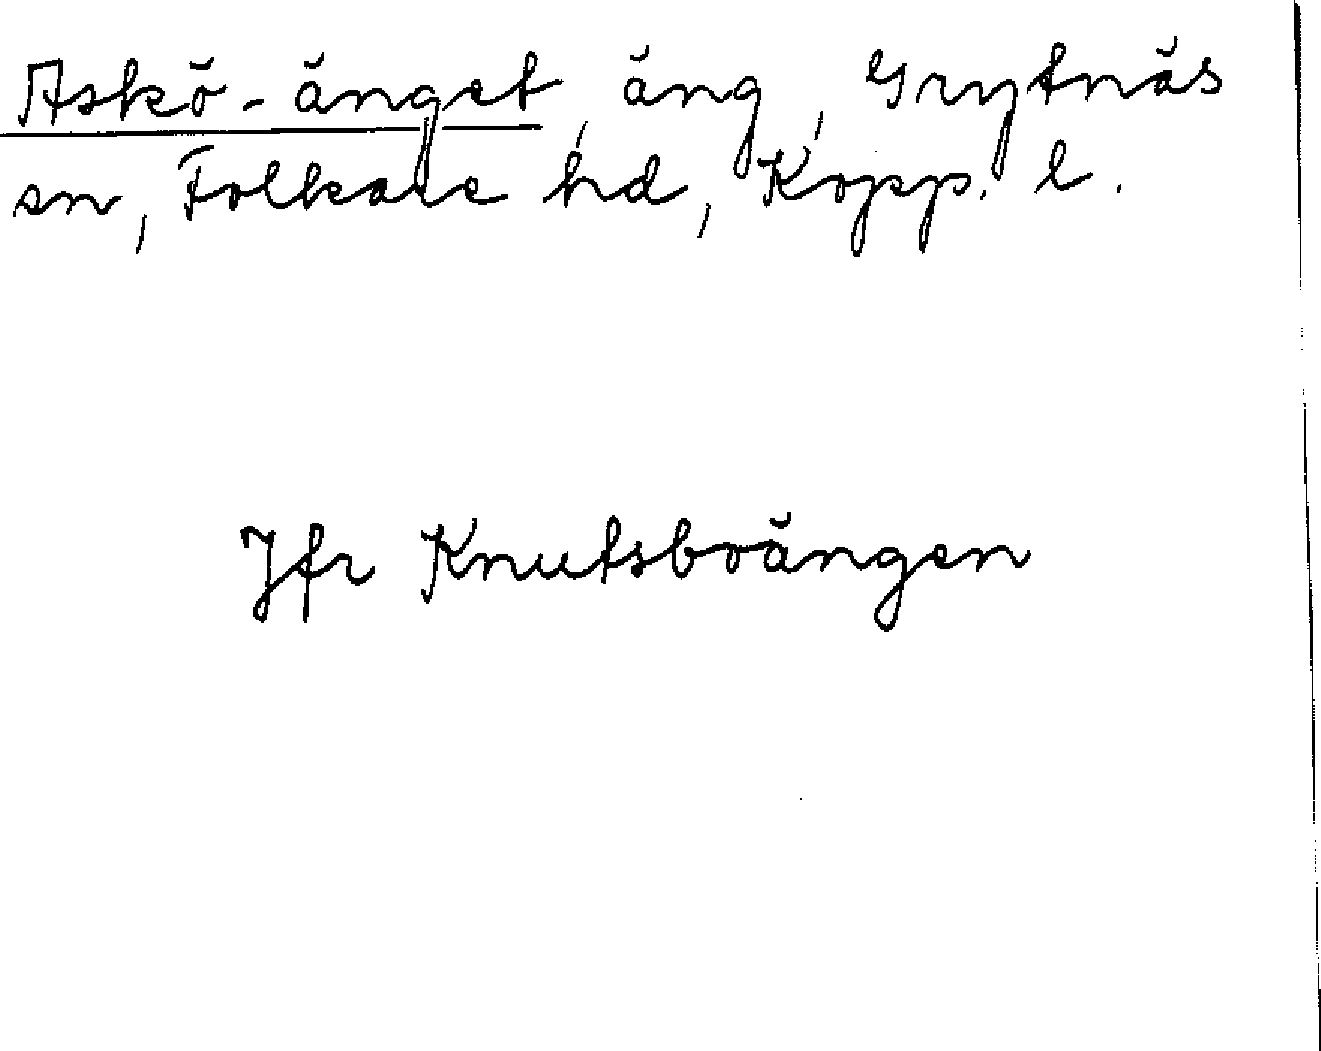 Askö-änget, äng, Grytnäs
sn, Folkare hd, Kopp. l.
Jfr Knutsboängen